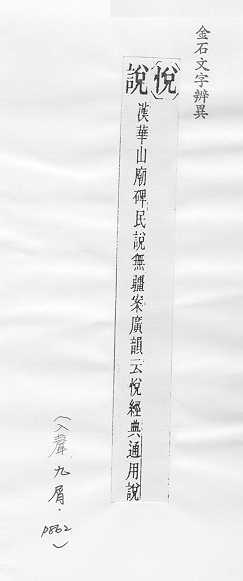 金石文字辨異
說(悅)
漢華山廟碑民說無疆案廣韻云悅經典通用說
(入聲九屑.
p862)